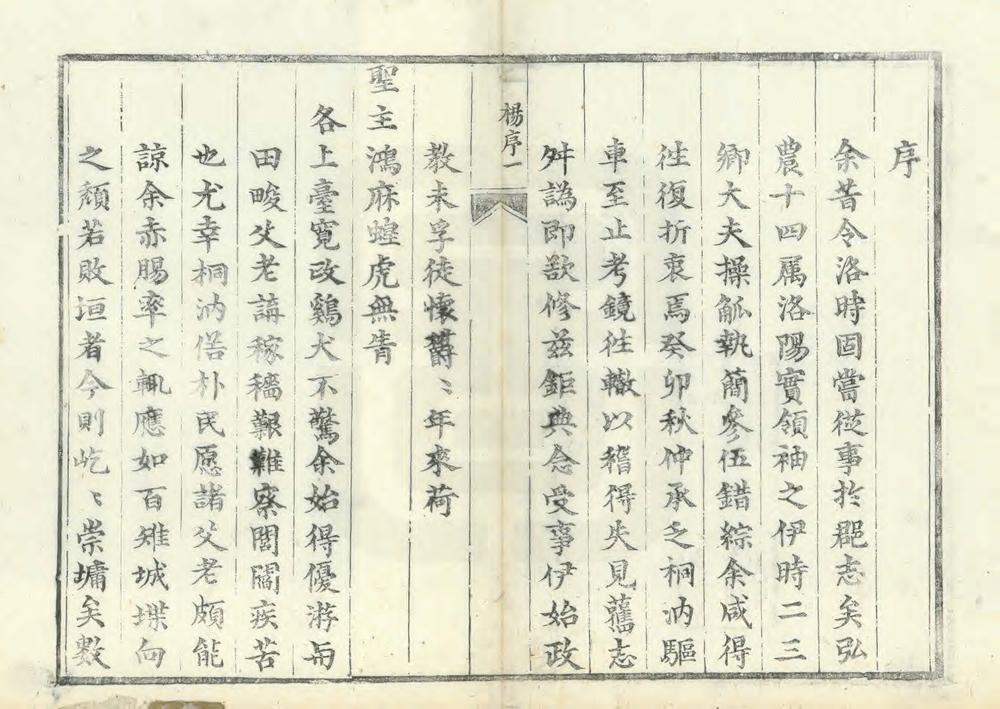 序
余昔令洛時固嘗從事於郡志矣弘
農十四屬洛陽實領袖之伊時二三
卿大夫操觚執簡參伍錯綜余咸得
徃復折衷焉癸卯秋仲承乏桐汭驅
車至止考鏡徃轍以稽得失見舊志
舛譌即欲修兹鉅典念受事伊始政
楊序一
教未孚徒懷欝〻年來荷
聖主鴻庥蝗虎無眚
各上臺寬政鷄犬不驚余始得優游與
田畯父老講稼穡艱難察閭閻疾苦
也尤幸桐汭俗朴民愿諸父老頗能
諒余赤賜率之輒應如百雉城堞向
之頹若敗垣者今則屹〻崇墉矣數